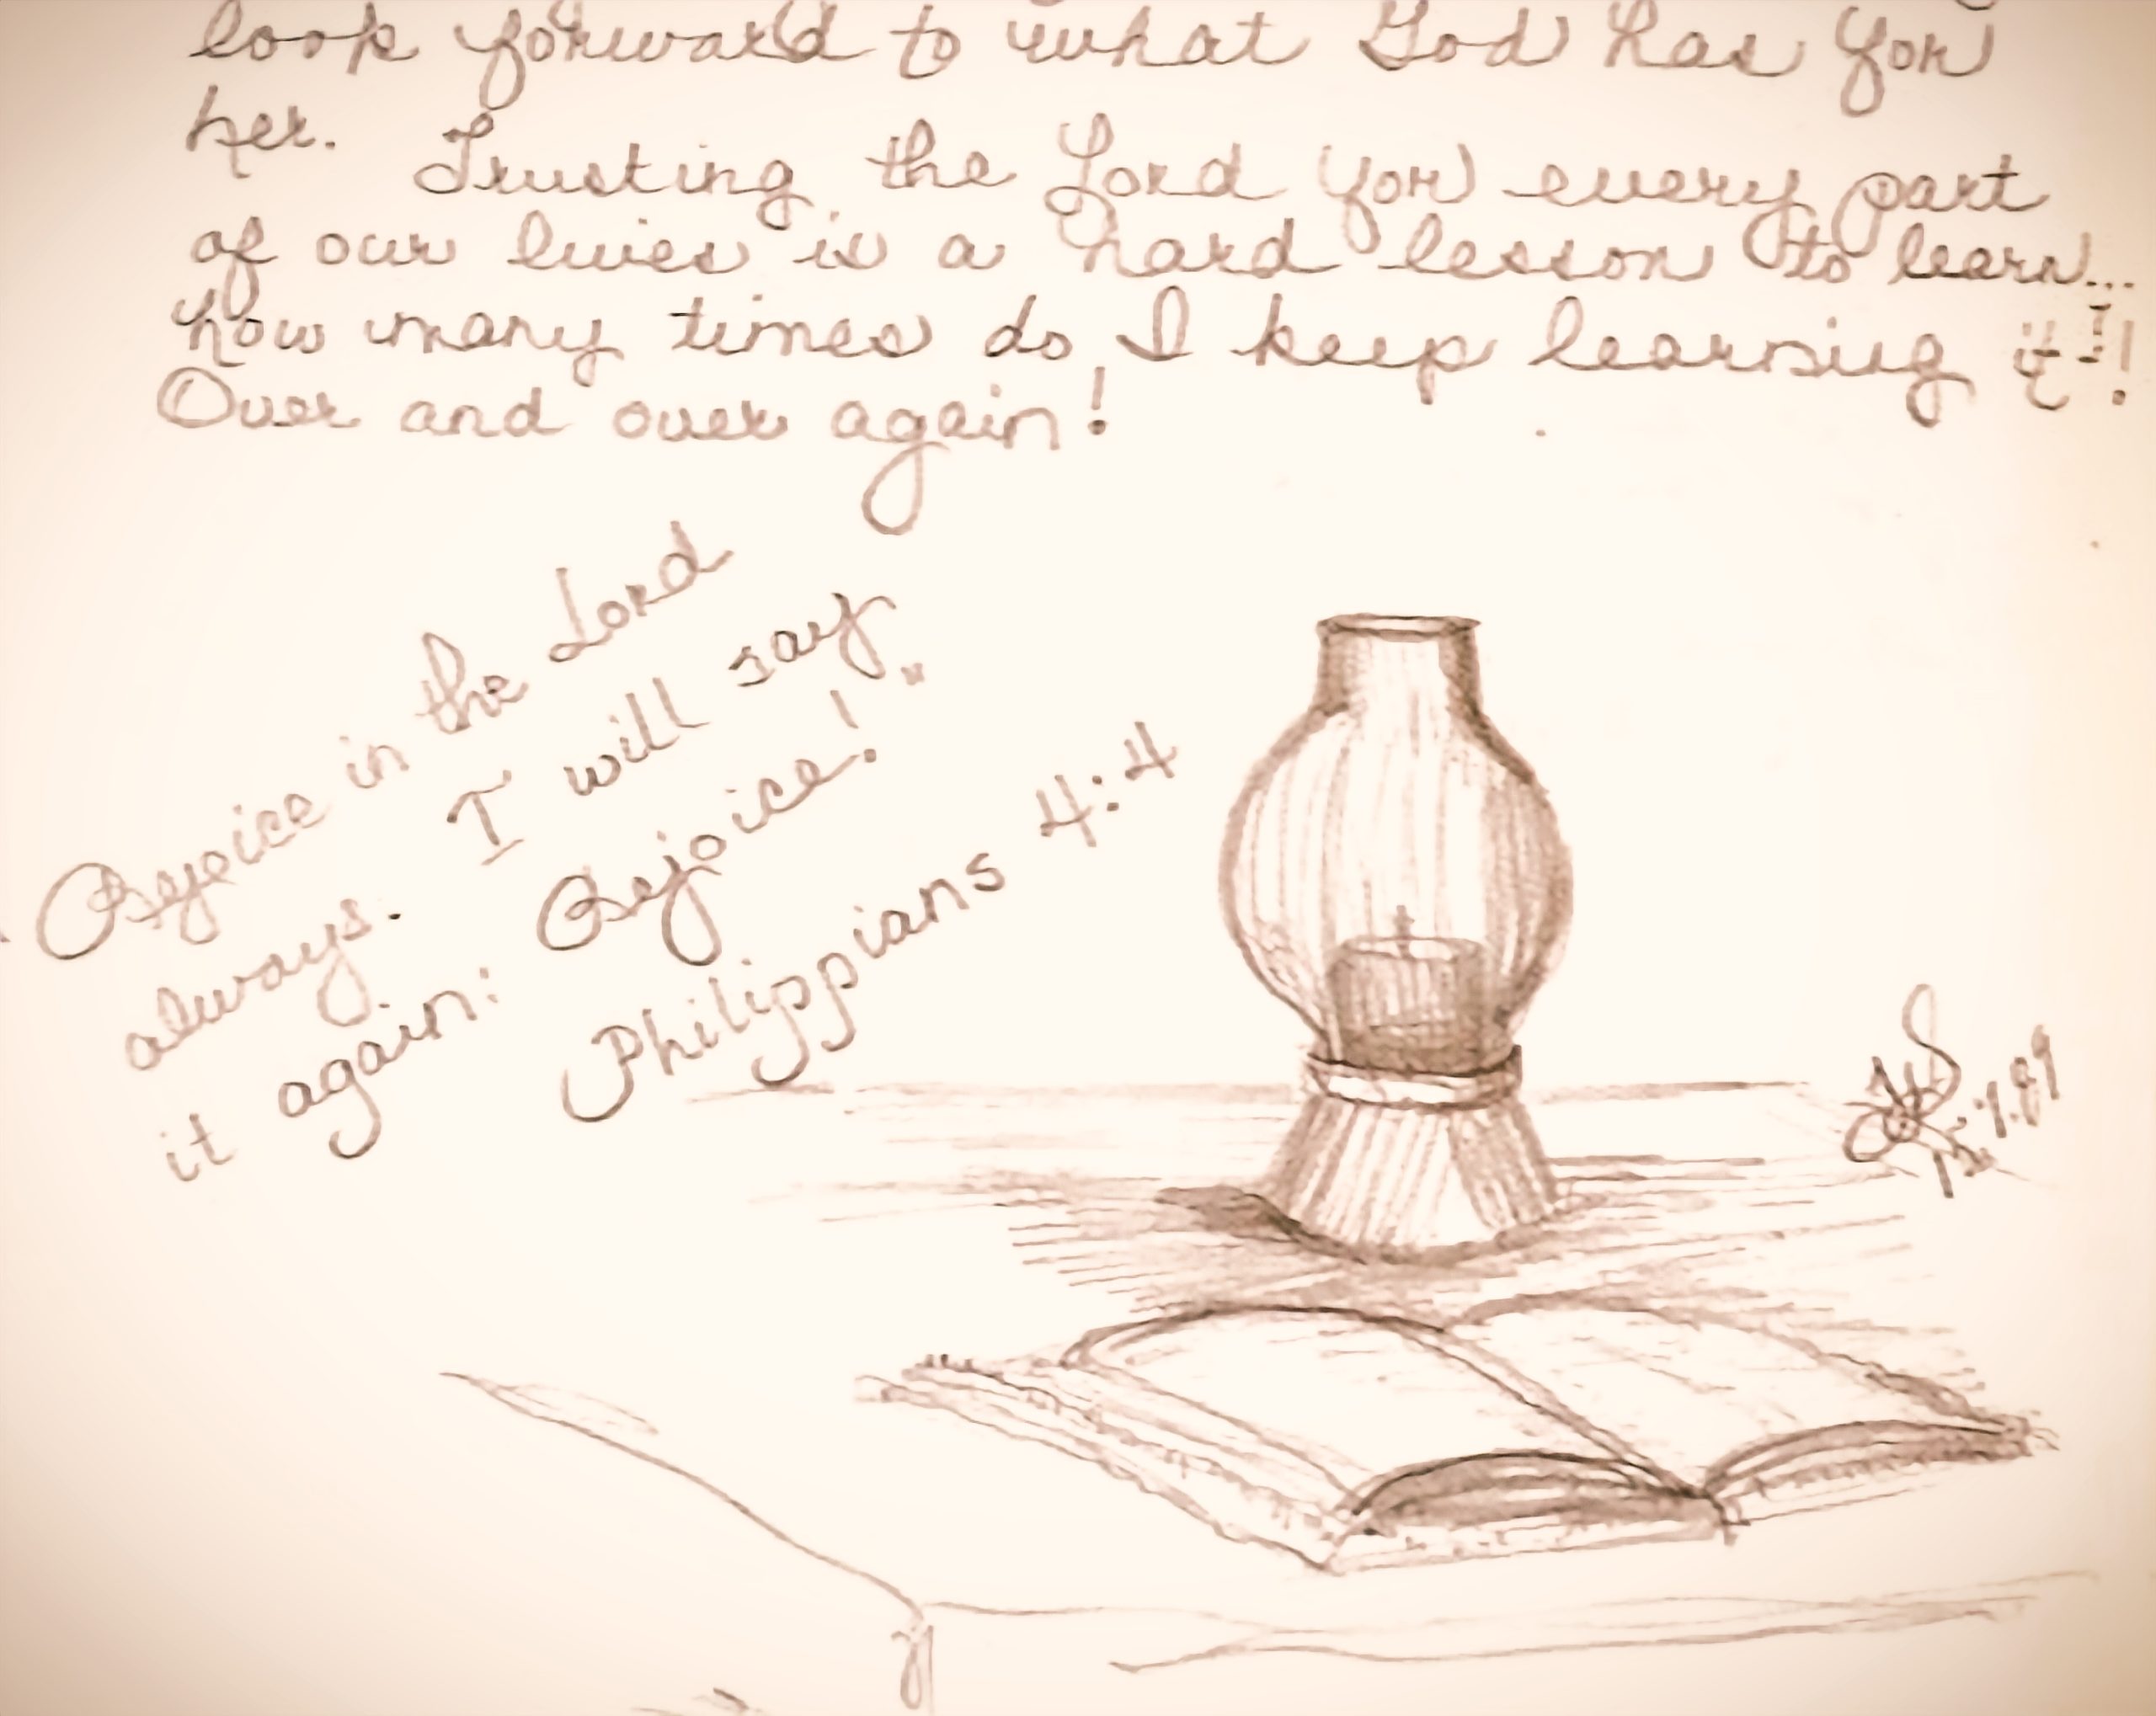 look forward to what God has for
her. Trusting the Lord for every part
of our lives is a hard lesson to learn...
how many times do I keep learning it?!
Over and over again!
Rejoice in the Lord
always. I will say
it again: Rejoice!"
Philippians 4:4